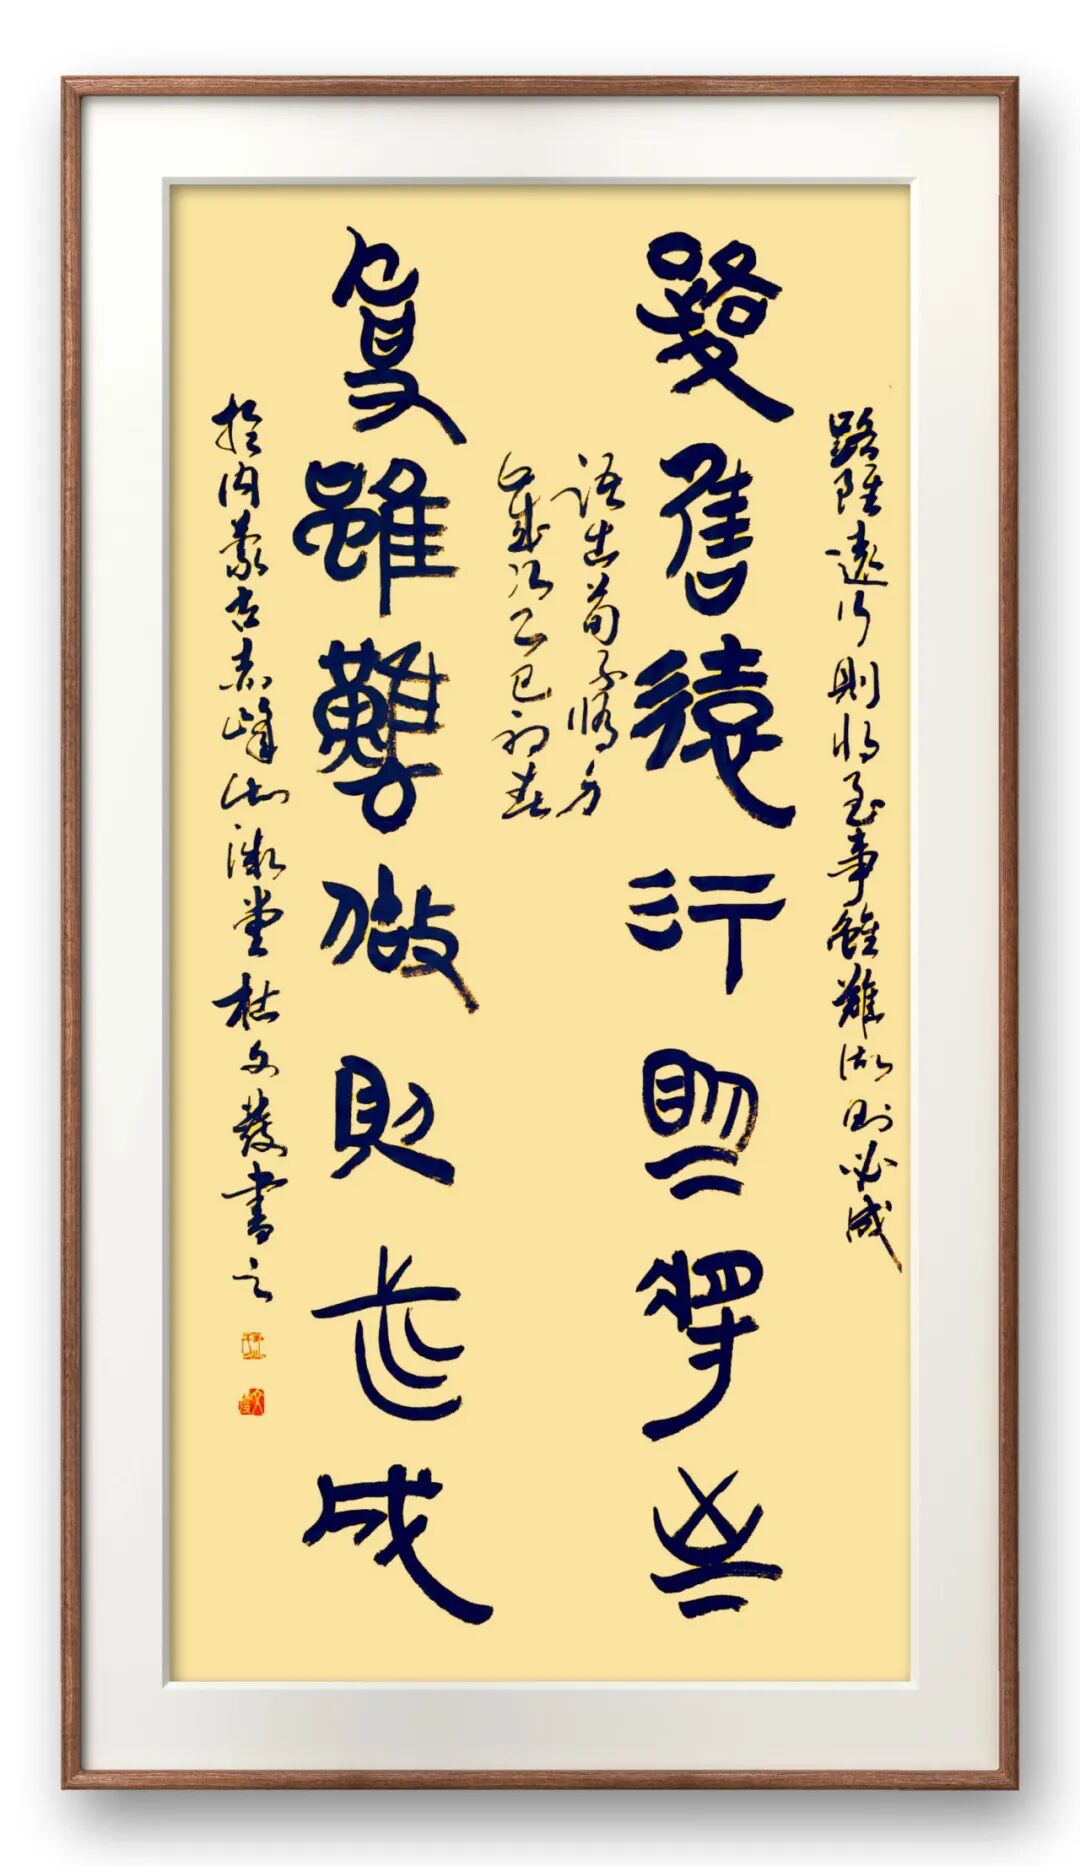 路雖遠行則將至事雖難做則必成
路雖遠行則將至
語出荀子脩身
歲次乙巳初春
事雖難做則必成
於内蒙古赤峰漱堂杜文發書之